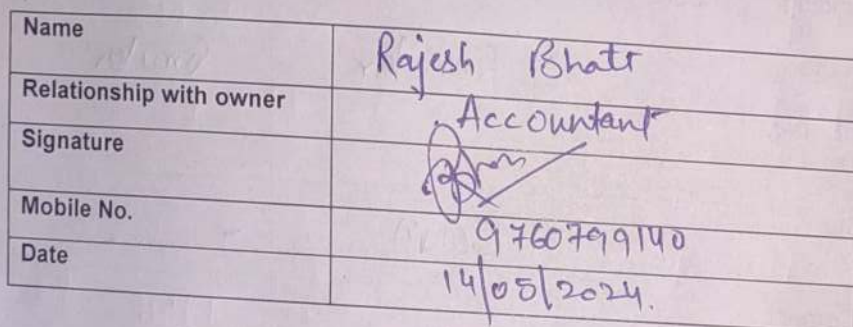 Name Rajesh Bhatt
Relationship with owner Accountant
Signature
Mobile No. 9760799140
Date 14/05/2024.